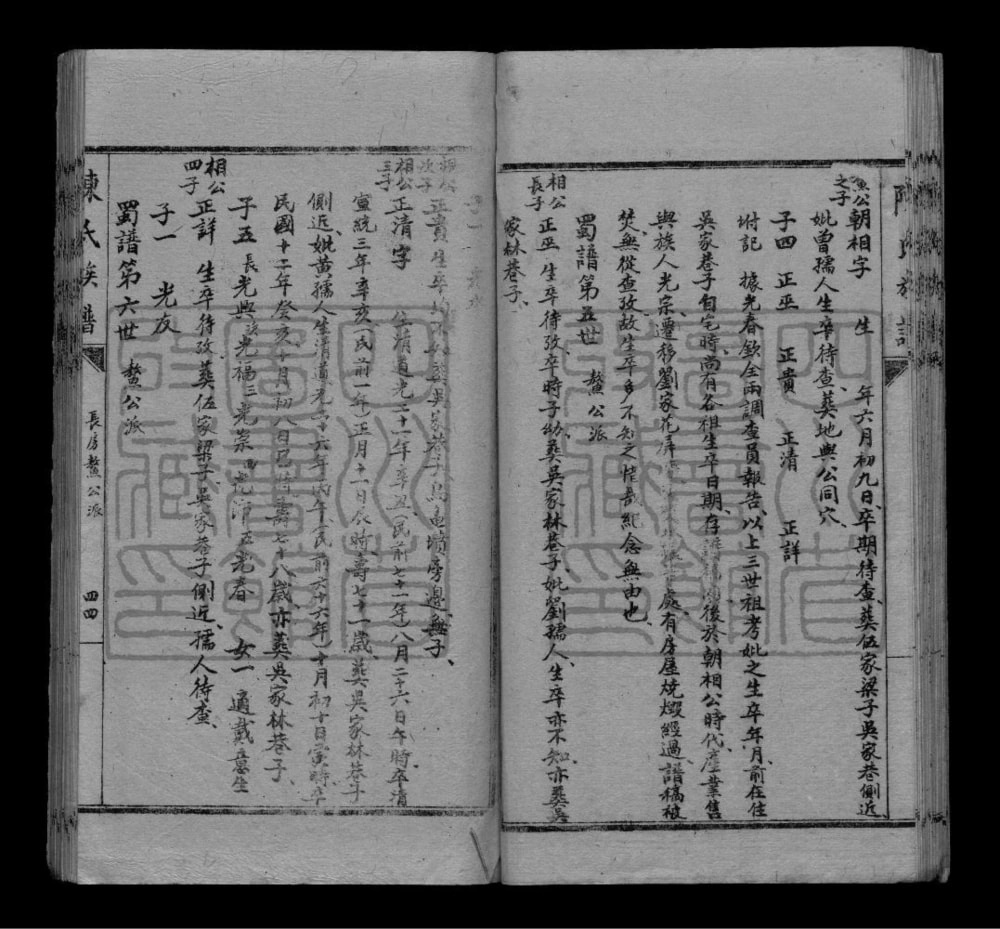 公朝相字 生 年六月初九日卒期待查葬伍家梁子吳家巷側近
之子
妣曾孺人生卒待查葬地與公同穴
子四 正巫 正貴 正清 正詳
附記 據光春欽全兩調查員報告以上三世祖考妣之生卒年月前在住
吳家巷子自宅時尚有各祖生卒日期存 後於朝相公時代產業售
與族人光宗遷移劉家花屏 處有房屋燒燬經過譜稿被
焚無從查攷故生卒多不知之惜哉紀念無由也
蜀譜第五世 鰲公派
相公長子 正巫 生卒待攷卒時子幼葬吳家林巷子妣劉孺人生卒亦不知亦葬吳
家林巷子
相公次子 正貴生卒均不 葬吳家巷子 墳旁邊無子
相公三子 正清字 生清道光二十一年辛丑(民前七十一年)八月二十六日午時卒清
宣統三年辛亥(民前一年)正月十一日辰時壽七十一歲葬吳家林巷子
側近妣黃孺人生清道光二十六年丙午(民前六十六年)十月初十日寅時卒
民國十二年癸亥十月初八日巳時壽七十八歲亦葬吳家林巷子
子五 長光興 次光福 三光崇 四 五光春 女一 適戴 生
相公四子 正詳 生卒待攷葬伍家梁子吳家巷子側近孺人待查
子一 光友
蜀譜第六世 鰲公派
陳氏族譜
長房鰲公派
四四